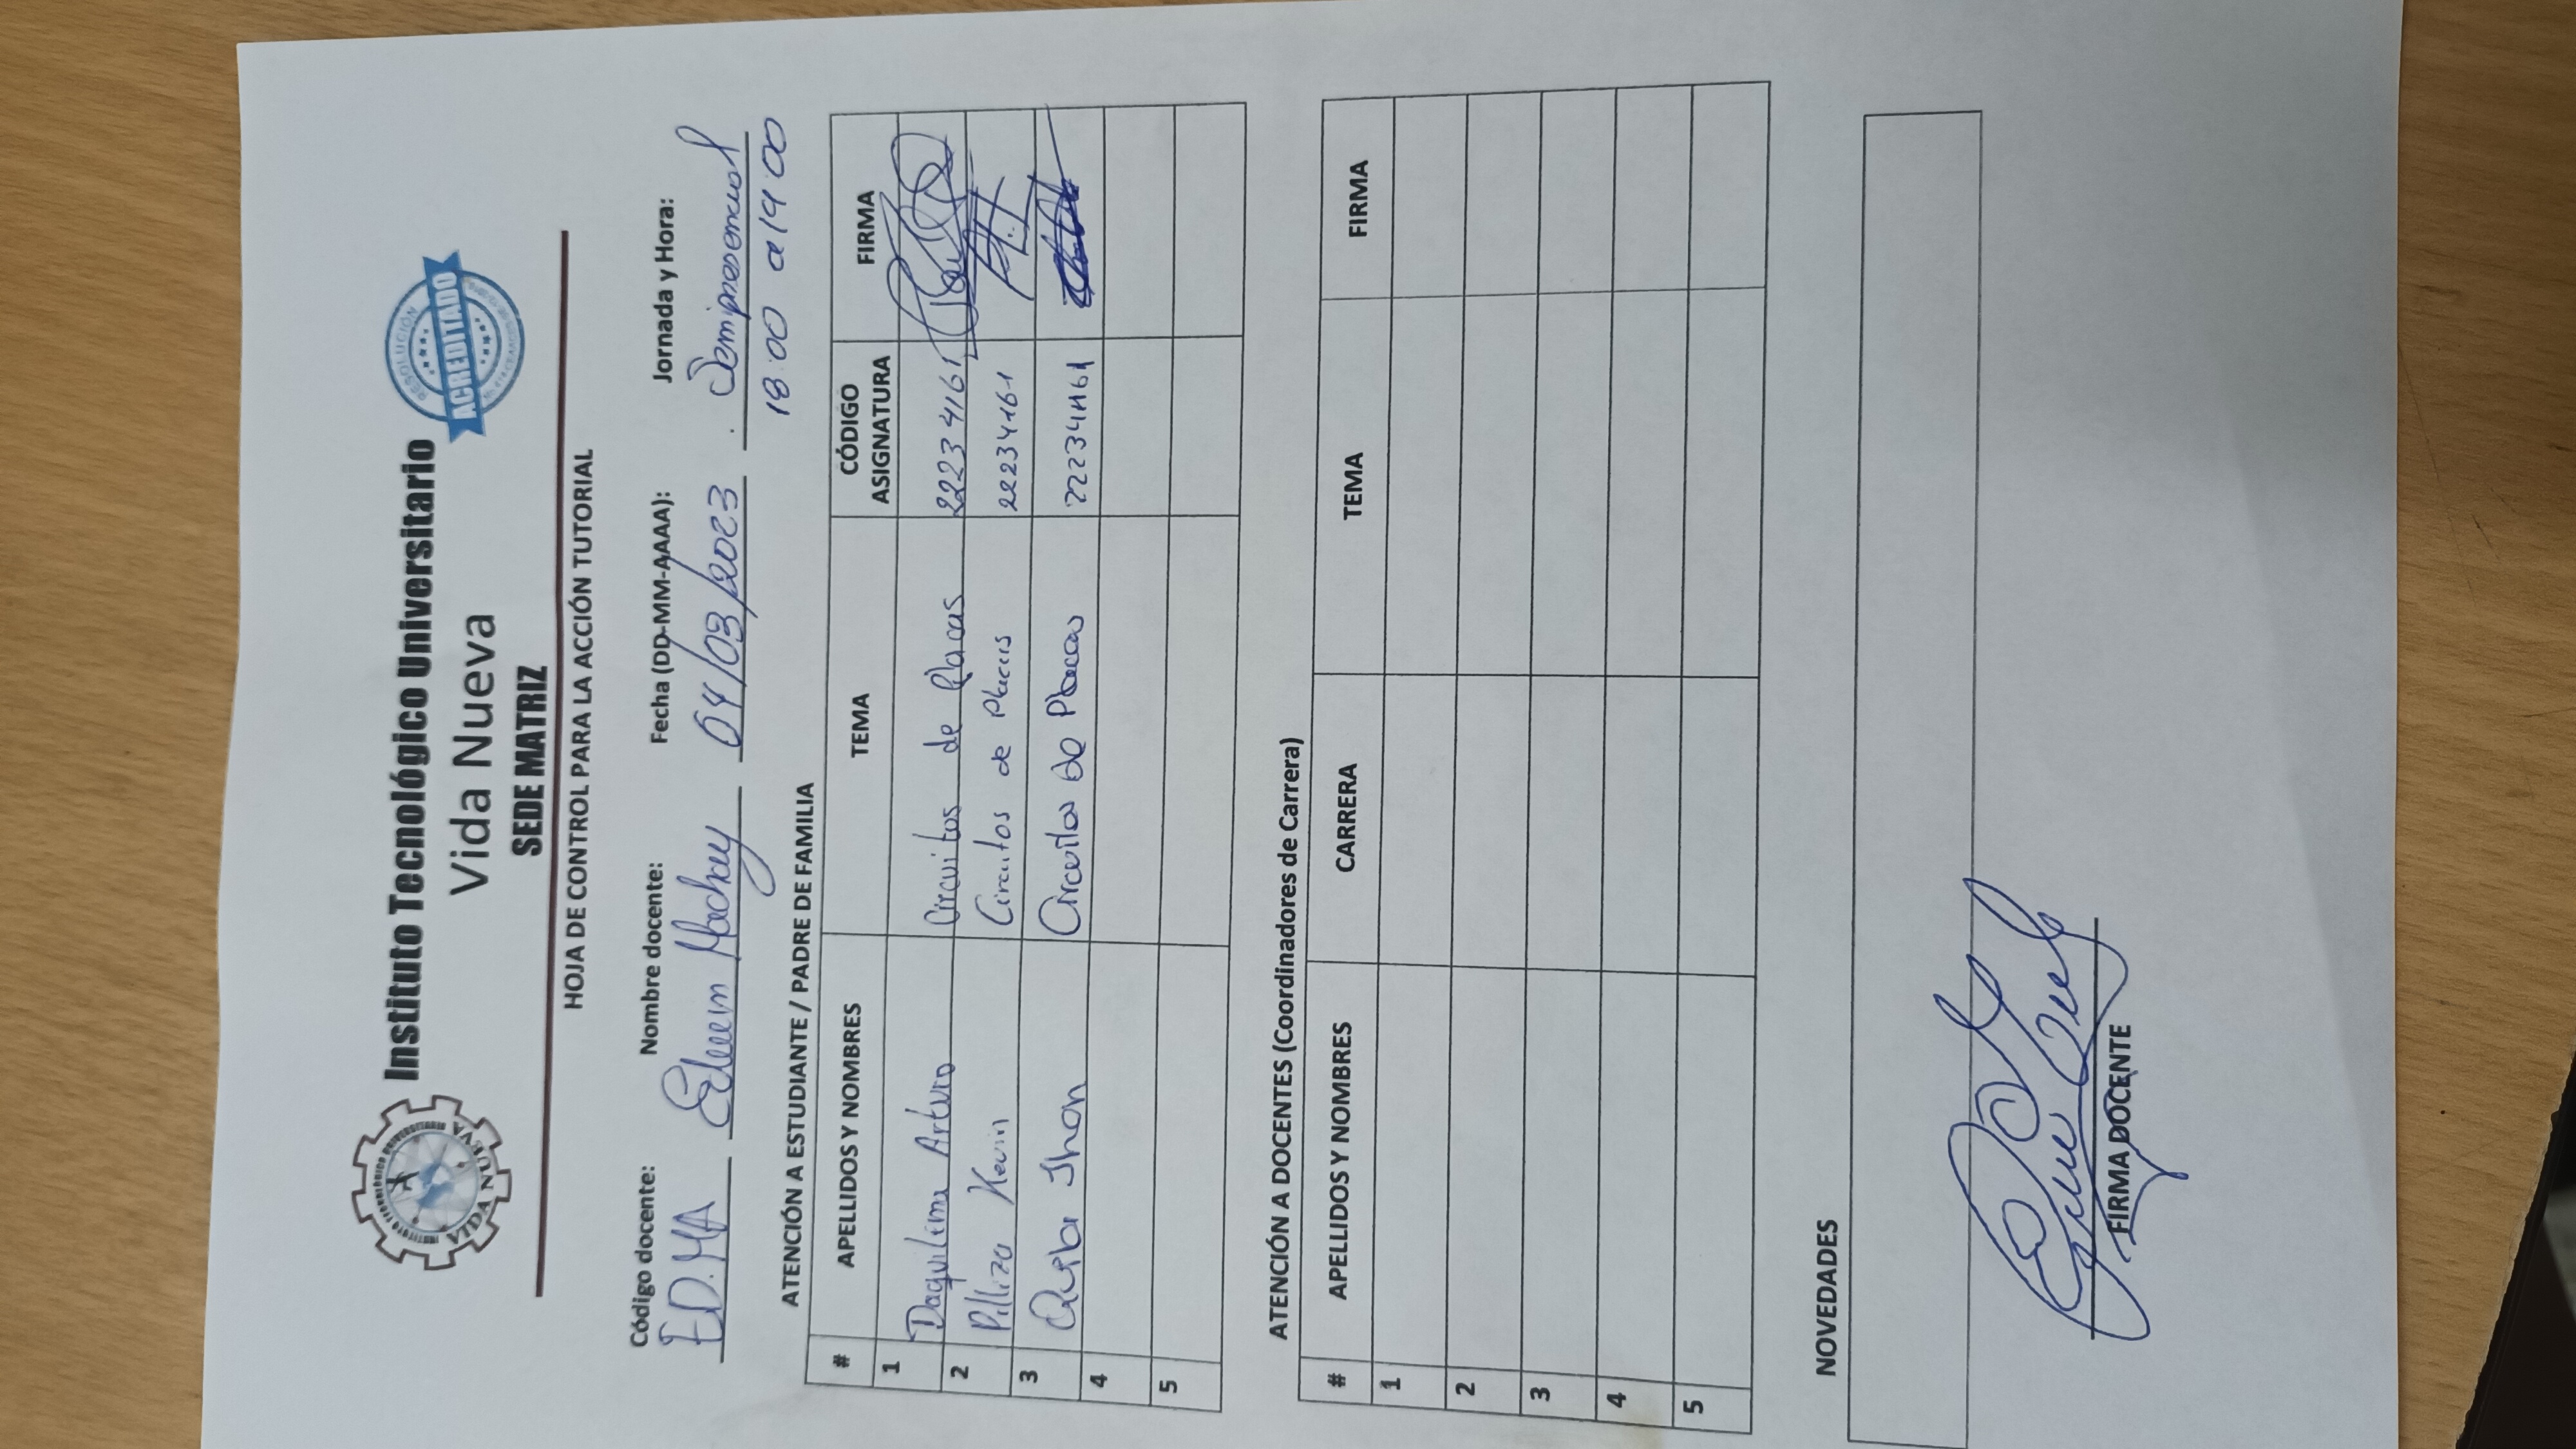 INSTITUTO TECNOLÓGICO UNIVERSITARIO
VIDA NUEVA
Instituto Tecnológico Universitario
Vida Nueva
SEDE MATRIZ
RESOLUCIÓN
ACREDITADO
HOJA DE CONTROL PARA LA ACCIÓN TUTORIAL
Código docente: Nombre docente: Fecha (DD-MM-AAAA): Jornada y Hora:
ED.MA Edwin Machay 04/03/2023 Semipresencial
18:00 a 19:00
ATENCIÓN A ESTUDIANTE / PADRE DE FAMILIA
# APELLIDOS Y NOMBRES TEMA CÓDIGO ASIGNATURA FIRMA
1 Daquilema Arturo Circuitos de Placas 22234161
2 Pilliza Kevin Circuitos de Placas 22234161
3 Jhon Circuitos de Placas 22234161
4
5
ATENCIÓN A DOCENTES (Coordinadores de Carrera)
# APELLIDOS Y NOMBRES CARRERA TEMA FIRMA
1
2
3
4
5
NOVEDADES
FIRMA DOCENTE